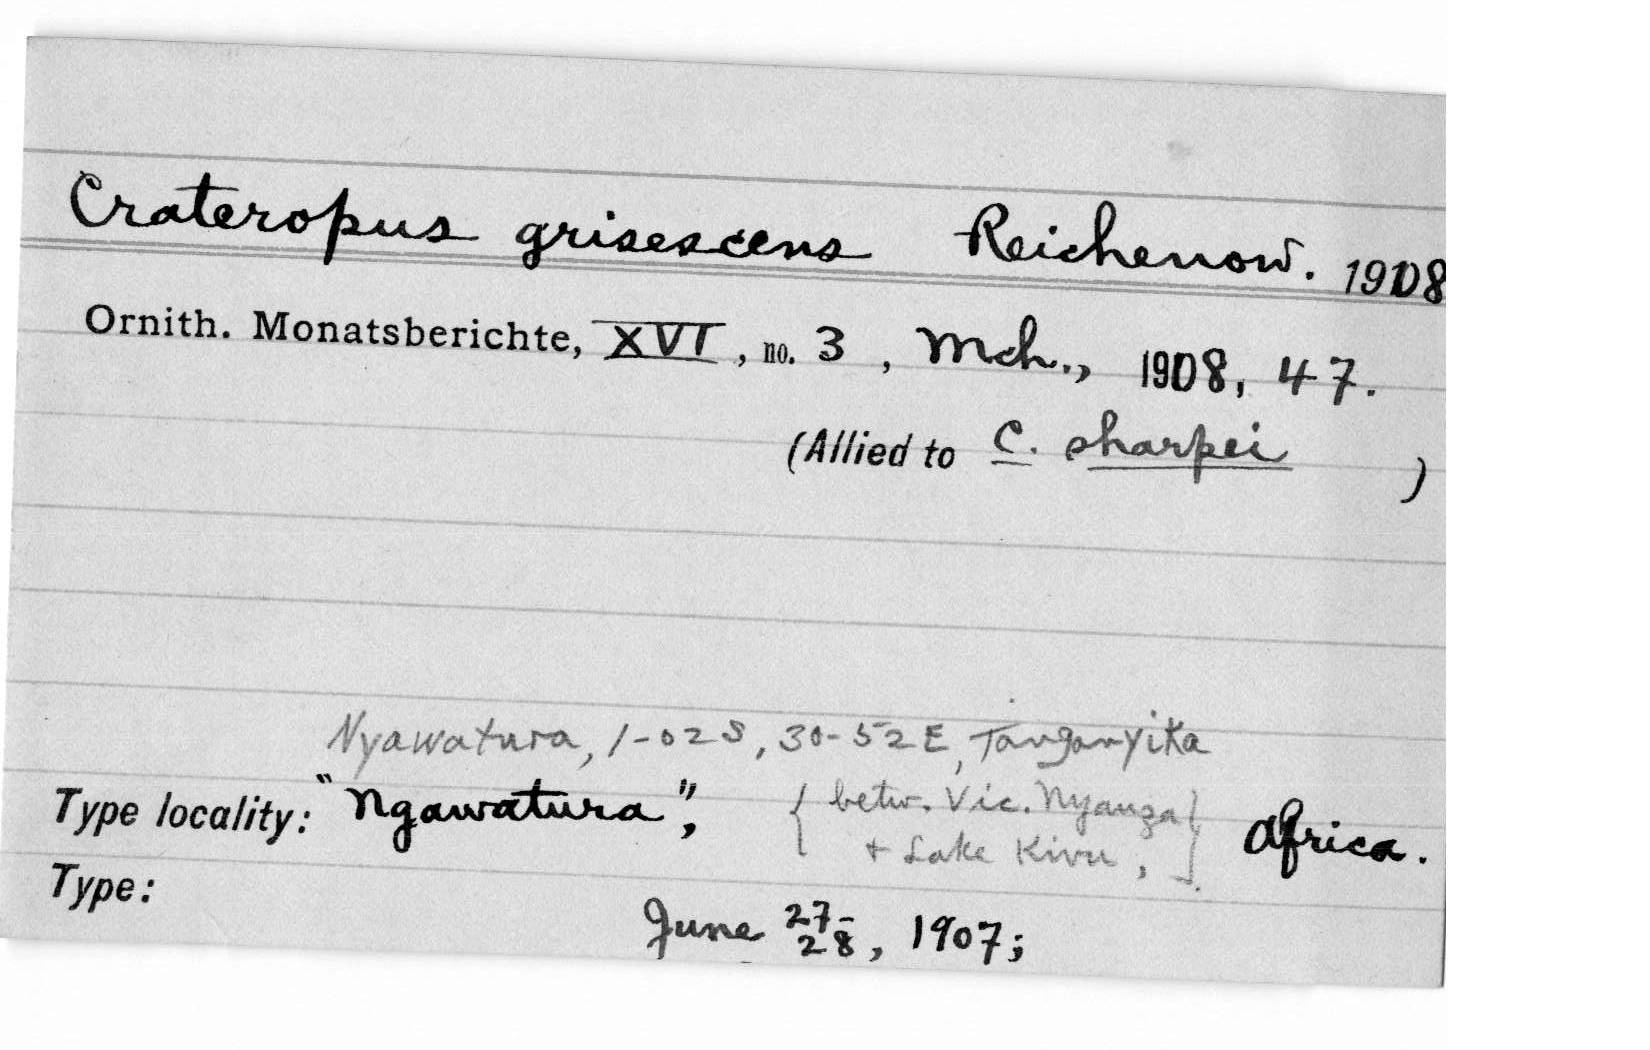 Crateropus grisescens Reichenow. 1908
Ornith. Monatsberichte, XVI, no. 3, Mch., 1908, 47.
(Allied to C. sharpei )
Nyawatura, 1-02S, 30-52E, Tanganyika
Type locality: "Ngawatura", { betw. Vic. Nyanza } Africa.
+ Lake Kivu,
Type:
June 27-
28, 1907;